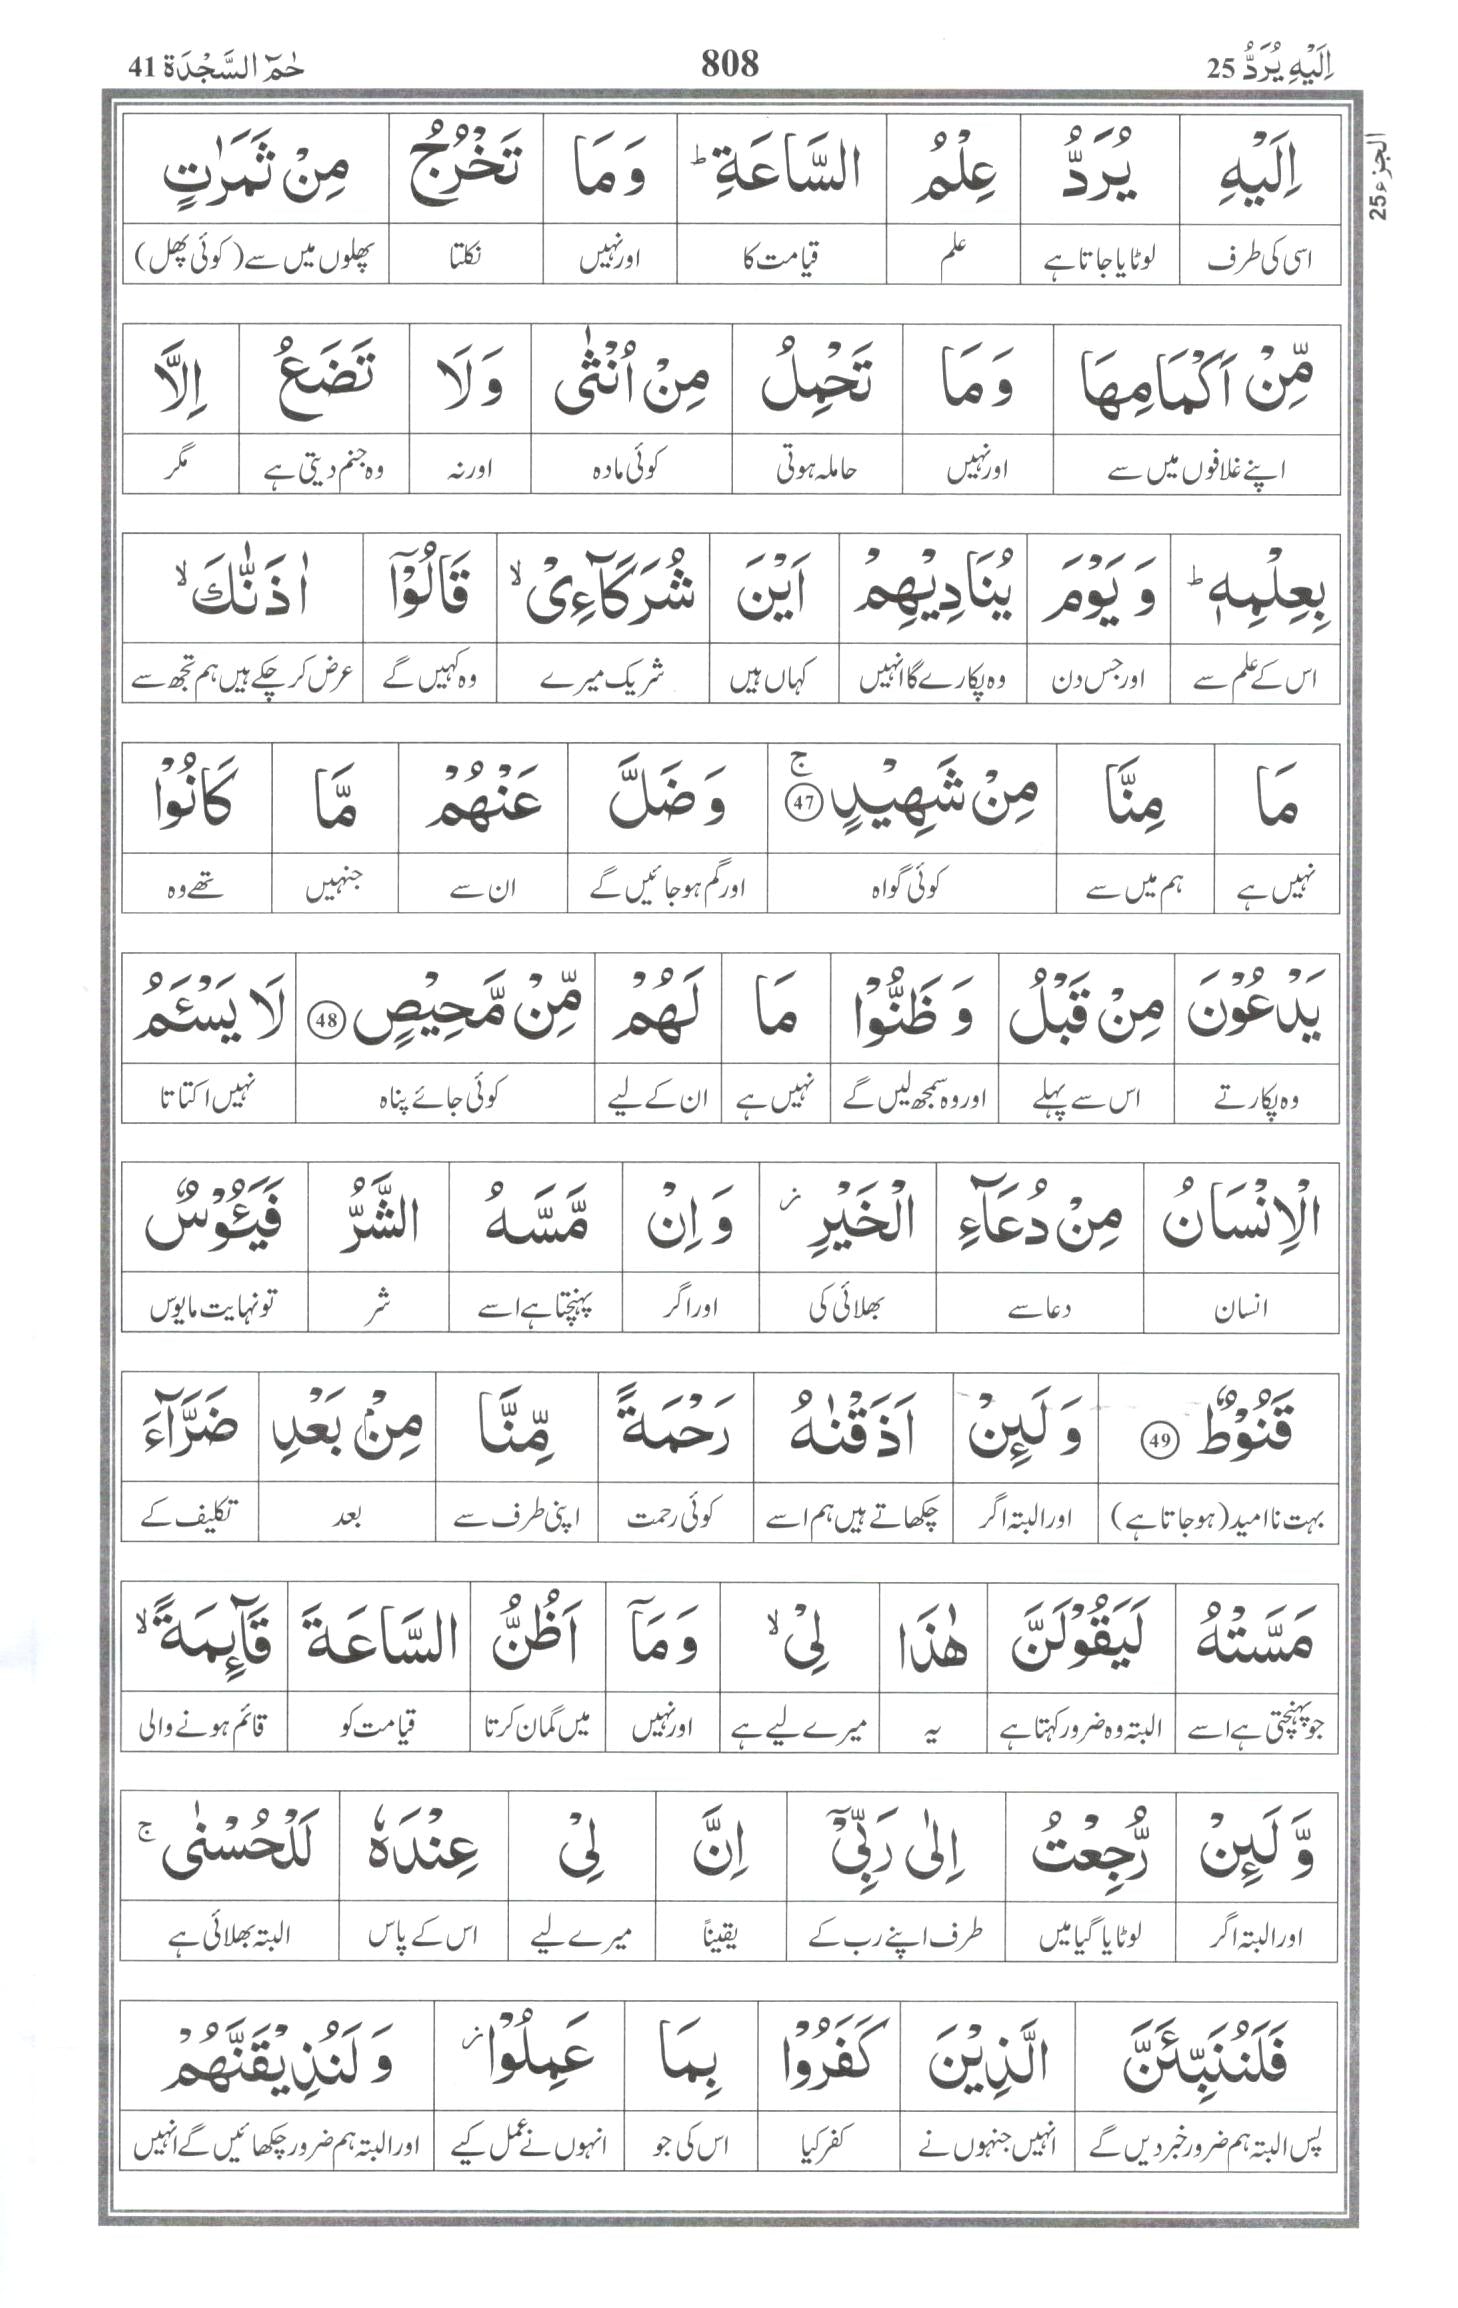 اِلَيْهِ يُرَدُّ 25 808 حٰمٓ السَّجْدَة 41
الجزء 25
اِلَيْهِ يُرَدُّ عِلْمُ السَّاعَةِ ؕ وَمَا تَخْرُجُ مِنْ ثَمَرٰتٍ
اسی کی طرف لوٹایا جاتا ہے علم قیامت کا اور نہیں نکلتا پھلوں میں سے (کوئی پھل)
مِّنْ اَكْمَامِهَا وَمَا تَحْمِلُ مِنْ اُنْثٰى وَلَا تَضَعُ اِلَّا
اپنے غلافوں میں سے اور نہیں حاملہ ہوتی کوئی مادہ اور نہ وہ جنم دیتی ہے مگر
بِعِلْمِهٖ ؕ وَيَوْمَ يُنَادِيْهِمْ اَيْنَ شُرَكَآءِيْ ۙ قَالُوْٓا اٰذَنّٰكَ ۙ
اس کے علم سے اور جس دن وہ پکارے گا انہیں کہاں ہیں شریک میرے وہ کہیں گے عرض کر چکے ہیں ہم تجھ سے
مَا مِنَّا مِنْ شَهِيْدٍ ۚ 47 وَضَلَّ عَنْهُمْ مَّا كَانُوْا
نہیں ہے ہم میں سے کوئی گواہ اور گم ہو جائیں گے ان سے جنہیں تھے وہ
يَدْعُوْنَ مِنْ قَبْلُ وَظَنُّوْا مَا لَهُمْ مِّنْ مَّحِيْصٍ 48 لَا يَسْـَٔمُ
وہ پکارتے اس سے پہلے اور وہ سمجھ لیں گے نہیں ہے ان کے لیے کوئی جائے پناہ نہیں اکتاتا
الْاِنْسَانُ مِنْ دُعَآءِ الْخَيْرِ ؗ وَاِنْ مَّسَّهُ الشَّرُّ فَيَـُٔوْسٌ
انسان دعا سے بھلائی کی اور اگر پہنچتا ہے اسے شر تو نہایت مایوس
قَنُوْطٌ 49 وَلَئِنْ اَذَقْنٰهُ رَحْمَةً مِّنَّا مِنْۢ بَعْدِ ضَرَّآءَ
بہت ناامید (ہو جاتا ہے) اور البتہ اگر چکھاتے ہیں ہم اسے کوئی رحمت اپنی طرف سے بعد تکلیف کے
مَسَّتْهُ لَيَقُوْلَنَّ هٰذَا لِيْ ۙ وَمَآ اَظُنُّ السَّاعَةَ قَآئِمَةً ۙ
جو پہنچتی ہے اسے البتہ وہ ضرور کہتا ہے یہ میرے لیے ہے اور نہیں میں گمان کرتا قیامت کو قائم ہونے والی
وَّلَئِنْ رُّجِعْتُ اِلٰى رَبِّيْٓ اِنَّ لِيْ عِنْدَهٗ لَلْحُسْنٰى ۚ
اور البتہ اگر لوٹایا گیا میں طرف اپنے رب کے یقیناً میرے لیے اس کے پاس البتہ بھلائی ہے
فَلَنُنَبِّئَنَّ الَّذِيْنَ كَفَرُوْا بِمَا عَمِلُوْا ؗ وَلَنُذِيْقَنَّهُمْ
پس البتہ ہم ضرور خبر دیں گے انہیں جنہوں نے کفر کیا اس کی جو انہوں نے عمل کیے اور البتہ ہم ضرور چکھائیں گے انہیں